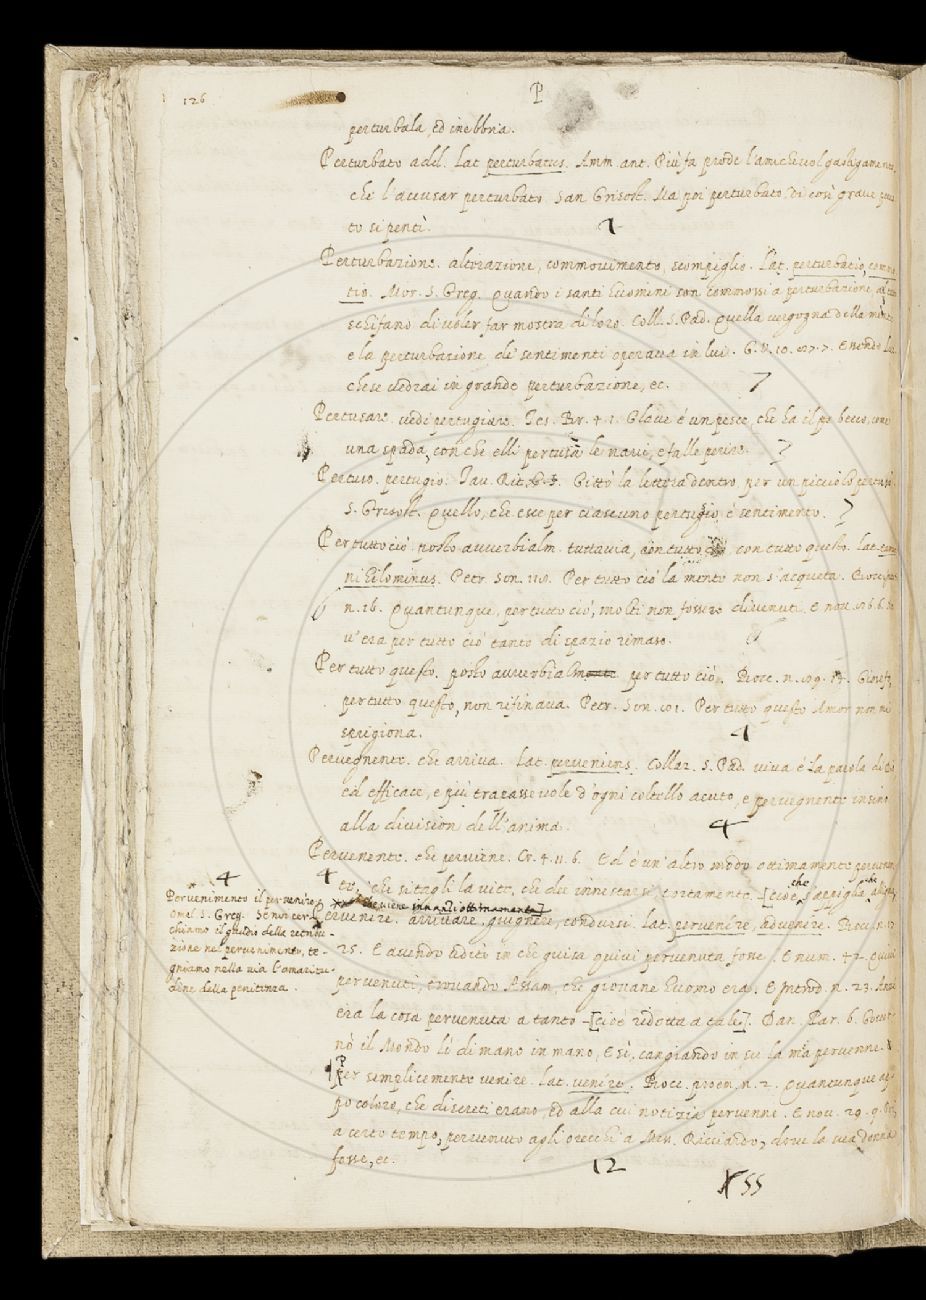 126
P
perturbala, ed inebbria.
Perturbato add. Lat. perturbatus. Amm. ant. Più fa prode l'amichevol gastigamento,
che l'accusar perturbato. San Grisost. Ma poi perturbato di così grave pecca
to si pentì.
1
Perturbazione. alterazione, commovimento, scompiglio. Lat. perturbatio, commo
tio. Mor. S. Greg. Quando i santi huomini son commossi a perturbazione,
schifano di voler far mostra di loro. Coll. S. Pad. Quella vergogna della mente
e la perturbazione de sentimenti operava in lui. G. V. 10. 127. 7. Essendo
chese dedrai in grande perturbazione, ec.
7
Pertusare. vedi pertugiare. Tes. Br. 4. 1. Glave è un pesce, che ha il becco, come
una spada, con che elli pertusa le navi, e falle perire.
7
Pertuso. pertugio. Tav. Rit. Gittò la lettera dentro, per un picciolo pertuso.
S. Grisost. Quello, che esce per ciascuno pertugio è sentimento.
7
Per tutto ciò. posto avverbialm. tuttavia, con tutto con tutto questo. Lat. tame
nihilominus. Petr. Son. 118. Per tutto ciò la mente non s'acqueta. Bocc.
n. 16. Quantunque, per tutto ciò, molti non fossero divenuti. E nov.
v'era per tutto ciò tanto di spazio rimaso.
Per tutto questo. posto avverbialmente per tutto ciò. Bocc. n. 109. 17.
per tutto questo, non rifinava. Petr. Son. 101. Per tutto questo Amor non mi
spregiona.
4
Pervegnente. che arriva. Lat. perveniens. Collaz. S. Pad. viva è la parola di Dio
ed efficace, e più trapassevole d'ogni coltello acuto, e pervegnente insino
alla division dell'anima.
4
Pervenente. che perviene. Cr. 4. 11. 6. Ed è un'altro modo ottimamente pervenen
te, che si tagli la vite, che dei innestarsi
che viene innanzi ottimamente]
4
Pervenimento il pervenire.
Omel. S. Greg. Se noi cer
chiamo il gaudio della retribu
zione nel pervenimento, te-
gniamo nella via l'amaritu-
dine della penitenza.
Pervenire. arrivare, giugnere, condursi. Lat. pervenire, advenire. Bocc. n. 17
25. E avendo udito in che guisa quivi pervenuta fosse. E num. 42. Quivi
pervenuti, trovando Assam, che giovane huomo era. E Introd. n. 23. Anzi
era la cosa pervenuta a tanto -[cioè ridotta a tale]. Dan. Par. 6. Gover
nò il Mondo lì di mano in mano, E sì, cangiando in su la mia pervenne.
¶ Per semplicemente venire. Lat. venire. Bocc. proem. n. 2. Quantunque ap
po coloro, che discreti erano, ed alla cui notizia pervenne. E nov. 29. 9.
a certo tempo, pervenuto agli orecchi a Mess. Ricciardo, dove la sua donna
fosse, ec.
12